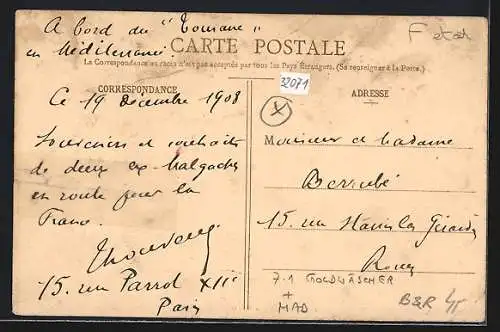 A bord du "Tourane"
en Méditerranée
F etch
CARTE POSTALE
La Correspondance au recto n'est pas acceptée par tous les Pays Étrangers. (Se renseigner à la Poste.)
32071
CORRESPONDANCE
ADRESSE
X
Ce 19 Décembre 1908
Souvenirs et souhaits
de deux ex-Malgaches
en route pour la
France.
15, rue Parrot XIIe
Paris
Monsieur et Madame
Berrubé
15, rue Stanislas Girardin
Rouen
7.1 GOLDWÄSCHER
+
MAD
B&R